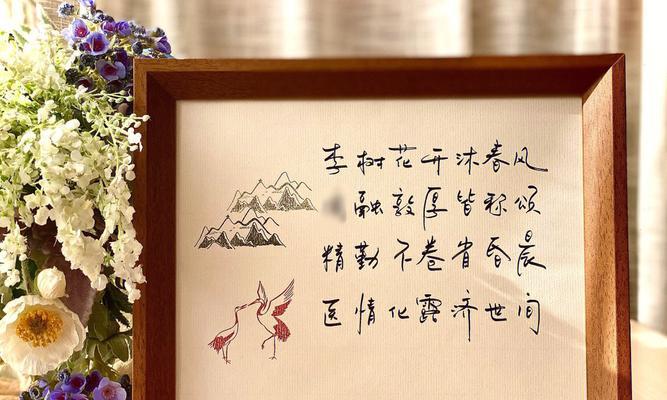 李树花开沐春风
融敦厚皆称颂
精勤不卷省昏晨
医情化露济世间